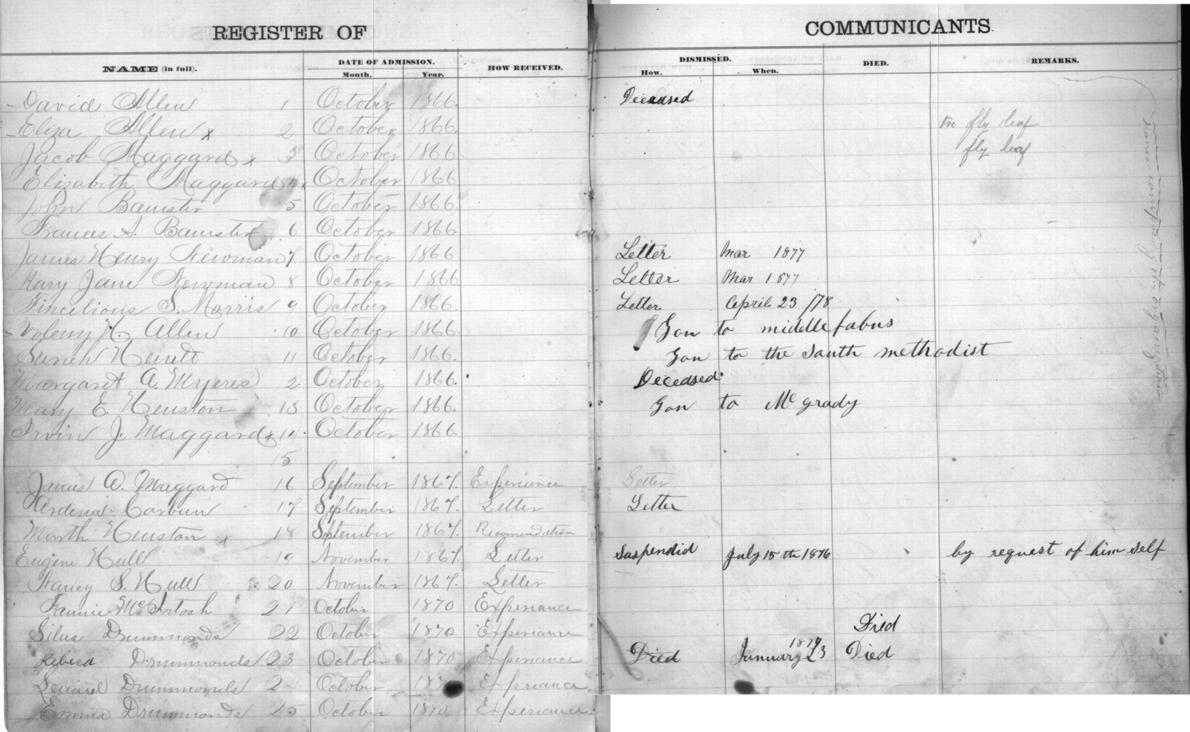 REGISTER OF COMMUNICANTS.
NAME (in full). DATE OF ADMISSION. HOW RECEIVED. DISMISSED. DIED. REMARKS.
Month. Year. How. When.
David Allen 1 October 1866 Deceased
Eliza Allen x 2 October 1866 on fly leaf
Jacob Maggard x 3 October 1866 fly leaf
Elizabeth Maggard October 1866
John Banister 5 October 1866
Frances A. Banister 6 October 1866
James Henry Newman 7 October 1866 Letter Mar 1877
Mary Jane Newman 8 October 1866 Letter Mar 1877
S. Morris 9 October 1866 Letter April 23 /78
Allen 10 October 1866 Gon to middle fabus
11 October 1866 Gon to the South methodist
Margaret A. Myeres 2 October 1866. Deceased
Mary E Heuston 13 October 1866. Gon to McGrady
Irvin J. Maggard x 14 October 1866
15
James A. Maggard 16 September 1867. Experiance Letter
17 September 1867. Letter Letter
Marth Heuston x 18 September 1867. Recomendation
Eugene Hull 19 November 1867 Letter Suspendid July 15th 1876 by request of him self
Nancy S. Hull 20 November 1867. Letter
Fannie McIntosh 21 October 1870 Experiance
Silus Drummonds 22 October 1870 Experiance Died
Drummonds 23 October 1870 Experiance Died January 23 1874 Died
Drummonds 2 October Experiance
Emma Drummonds 25 October 1870 Experiance